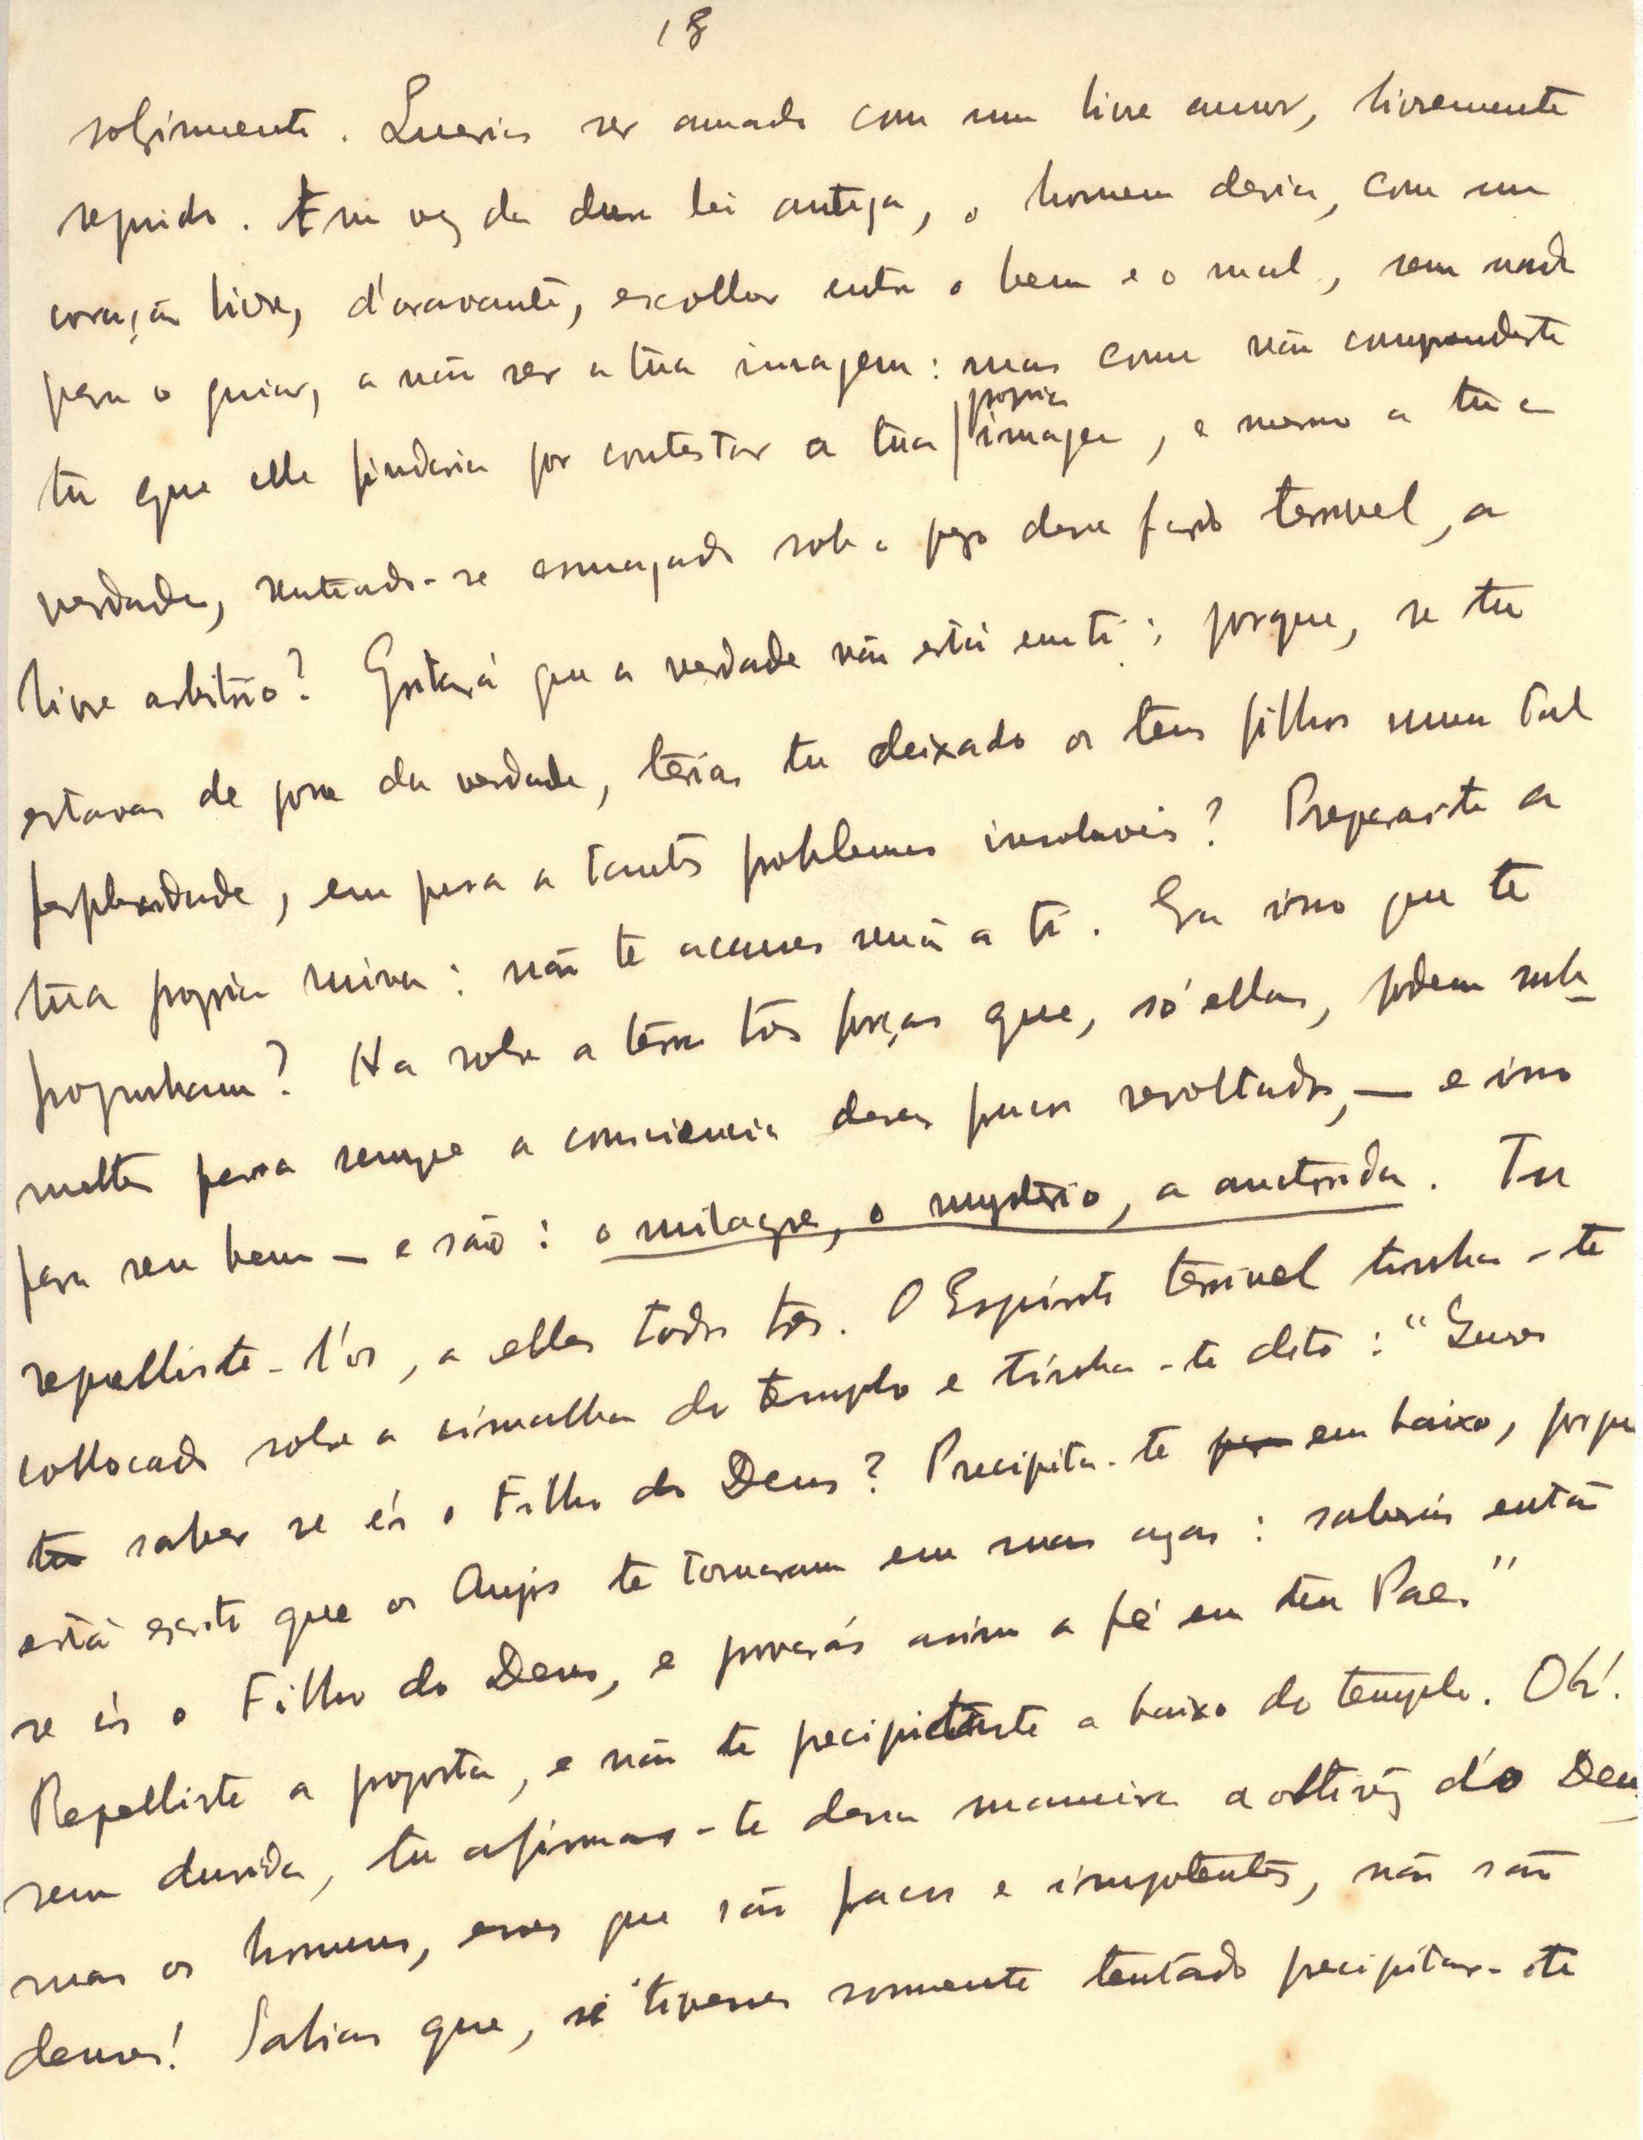 18
soffrimento. Querias ser amado com um livre amor, livremente
seguido. Em vez da dura lei antiga, o homem devia, com um
coração livre, d'oravante, escolher entre o bem e o mal, sem nada
para o guiar, a não ser a tua imagem: mas como não comprendeste
tu que elle findaria por contestar a tua propria imagem, e mesmo a tua
verdade, sentindo-se esmagado sob o peso desse fardo terrivel, o
livre arbitrio? Gritará que a verdade não está em ti; porque, se tu
estavas de posse da verdade, terias tu deixado os teus filhos numa tal
perplexidade, em presa a tantos problemas insoluveis? Preparaste a
tua propria ruina: não te accuses senão a ti. Era isso que te
propunham? Ha sobre a terra tres forças que, só ellas, podem sub-
metter para sempre a consciencia desses fracos revoltados, — e isso
para seu bem — e são: o milagre, o mysterio, a auctoridade. Tu
repelliste-l'os, a elles todos tres. O Espirito terrivel tinha-te
collocado sobre a cimalha do templo e tinha-te dito: "Queres
saber se és o Filho de Deus? Precipita-te em baixo, porque
está escrito que os Anjos te tomaram em suas azas: saberás então
se és o Filho de Deus, e provarás assim a fé em teu Pae."
Repelliste a proposta, e não te precipitaste a baixo do templo. Oh!
sem duvida, tu afirmas-te dessa maneira a altivez do Deus;
mas os homens, esses que são fracos e impotentes, não são
deuses! Sabias que, se tivesses somente tentado precipitar-te